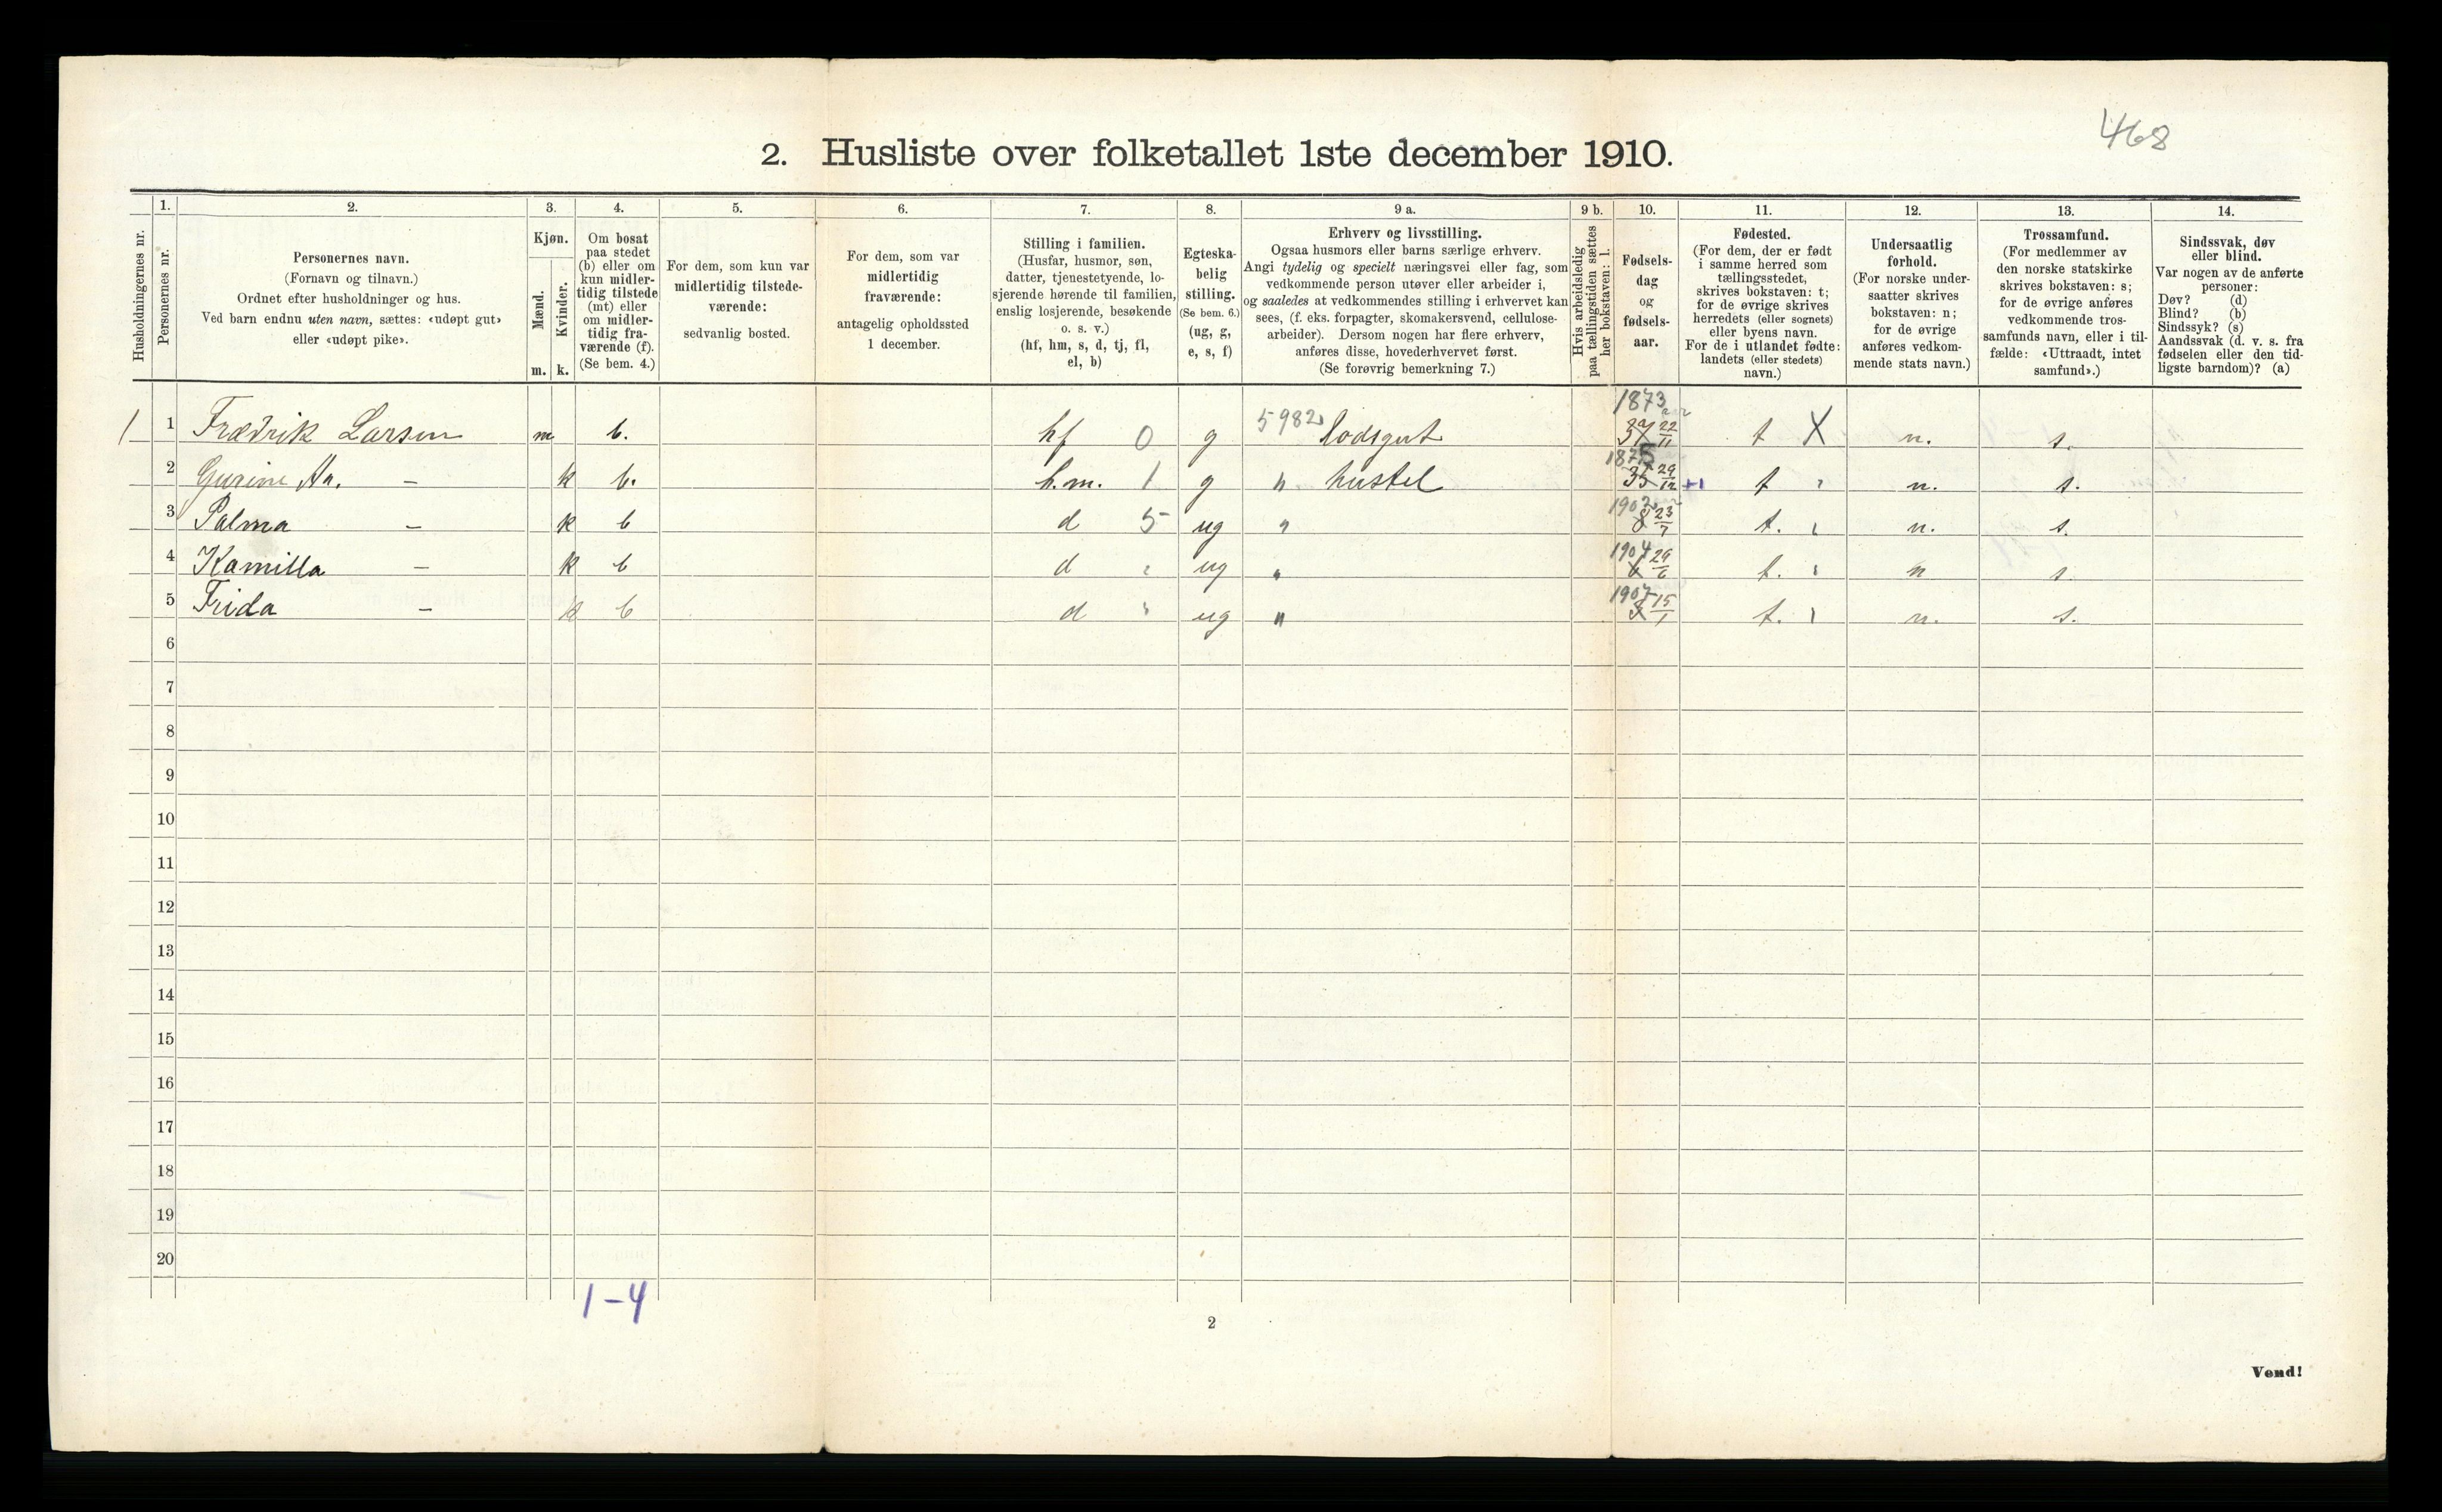 468
2. Husliste over folketallet 1ste december 1910.
Husholdningernes nr.
1.
Personernes nr.
2.
Personernes navn.
(Fornavn og tilnavn.)
Ordnet efter husholdninger og hus.
Ved barn endnu uten navn, sættes: «udøpt gut»
eller «udøpt pike».
3.
Kjøn.
Mænd.
Kvinder.
m. k.
4.
Om bosat
paa stedet
(b) eller om
kun midler-
tidig tilstede
(mt) eller
om midler-
tidig fra-
værende (f).
(Se bem. 4.)
5.
For dem, som kun var
midlertidig tilstede-
værende:
sedvanlig bosted.
6.
For dem, som var
midlertidig
fraværende:
antagelig opholdssted
1 december.
7.
Stilling i familien.
(Husfar, husmor, søn,
datter, tjenestetyende, lo-
sjerende hørende til familien,
enslig losjerende, besøkende
o. s. v.)
(hf, hm, s, d, tj, fl,
el, b)
8.
Egteska-
belig
stilling.
(Se bem. 6.)
(ug, g,
e, s, f)
9 a.
Erhverv og livsstilling.
Ogsaa husmors eller barns særlige erhverv.
Angi tydelig og specielt næringsvei eller fag, som
vedkommende person utøver eller arbeider i,
og saaledes at vedkommendes stilling i erhvervet kan
sees, (f. eks. forpagter, skomakersvend, cellulose-
arbeider). Dersom nogen har flere erhverv,
anføres disse, hovederhvervet først.
(Se forøvrig bemerkning 7.)
9 b.
Hvis arbeidsledig
paa tællingstiden sættes
her bokstaven: l.
10.
Fødsels-
dag
og
fødsels-
aar.
11.
Fødested.
(For dem, der er født
i samme herred som
tællingsstedet,
skrives bokstaven: t;
for de øvrige skrives
herredets (eller sognets)
eller byens navn.
For de i utlandet fødte:
landets (eller stedets)
navn.)
12.
Undersaatlig
forhold.
(For norske under-
saatter skrives
bokstaven: n;
for de øvrige
anføres vedkom-
mende stats navn.)
13.
Trossamfund.
(For medlemmer av
den norske statskirke
skrives bokstaven: s;
for de øvrige anføres
vedkommende tros-
samfunds navn, eller i til-
fælde: «Uttraadt, intet
samfund».)
14.
Sindssvak, døv
eller blind.
Var nogen av de anførte
personer:
Døv? (d)
Blind? (b)
Sindssyk? (s)
Aandssvak (d. v. s. fra
fødselen eller den tid-
ligste barndom)? (a)
1 1 Fredrik Larsen m b. hf 0 g 5982 lodsgut 1873 37 22/11 t X n. s.
2 Gurine An. – k b. h.m. 1 g " hustel 1875 35 29/12 +1 t " n. s.
3 Palma – k b d 5 ug " 1902 8 23/7 t. " n. s.
4 Kamilla – k b d " ug " 1904 6 29/6 t. " n s.
5 Frida – k b d " ug " 1907 3 15/1 t. " n. s.
6
7
8
9
10
11
12
13
14
15
16
17
18
19
20
1-4
2
Vend!